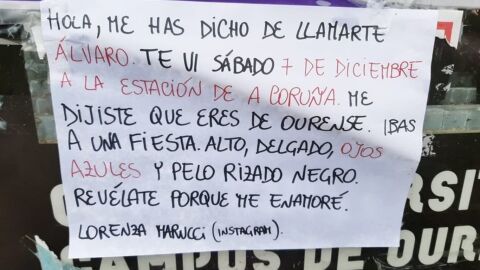 HOLA, ME HAS DICHO DE LLAMARTE
ÁLVARO. TE VI SÁBADO 7 DE DICIEMBRE
A LA ESTACIÓN DE A CORUÑA. ME
DIJISTE QUE ERES DE OURENSE. IBAS
A UNA FIESTA. ALTO, DELGADO, OJOS
AZULES Y PELO RIZADO NEGRO.
REVÉLATE PORQUE ME ENAMORÉ.
LORENZA MARUCCI (INSTAGRAM).
CAMPUS DE OURE